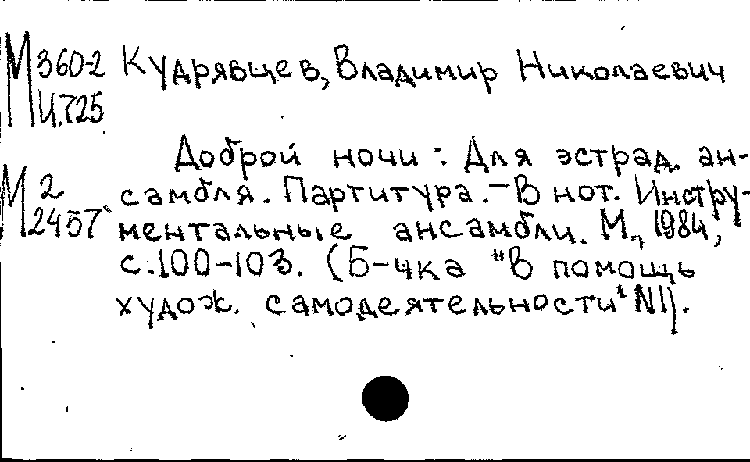 М 360-2 Кудрявцев, Владимир Николаевич
И.725
Доброй ночи : Для эстрад. ан-
М 2 самбля. Партитура. - В нот. Инстру-
2457 ментальные ансамбли. М., 1984,
с.100-103. (Б-чка "В помощь
худож. самодеятельности" N1).